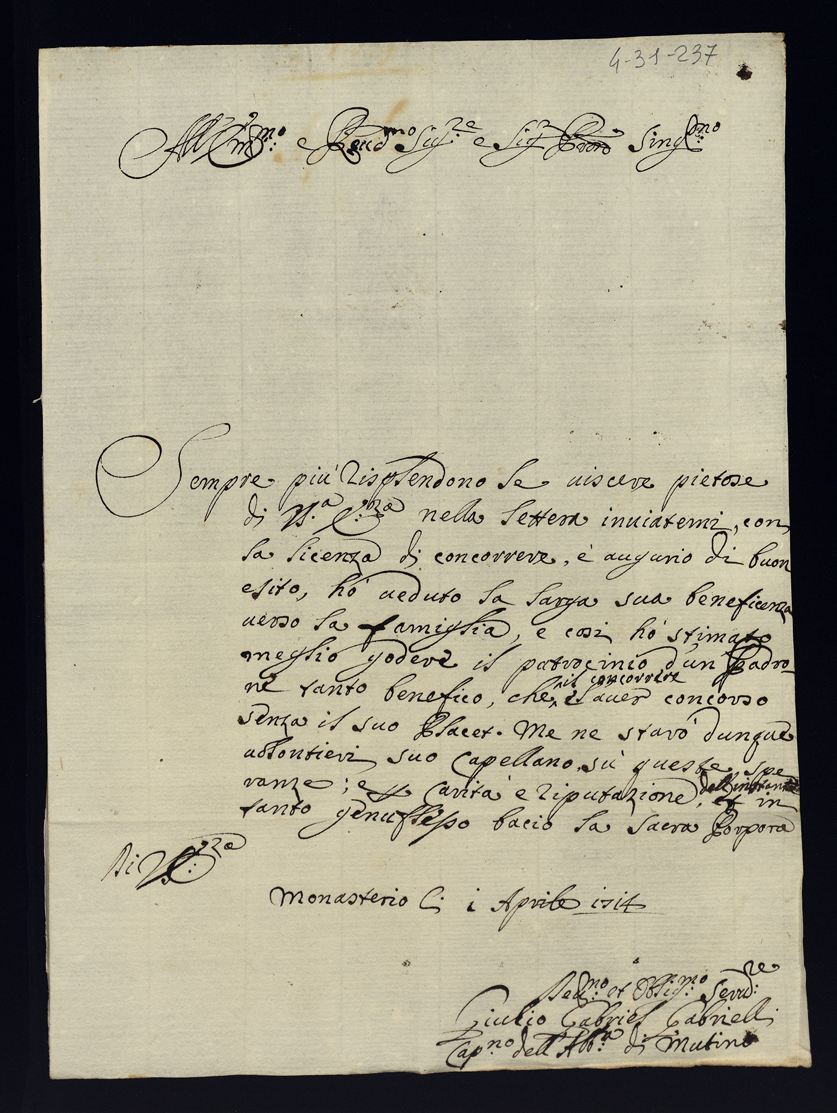 4-31-237
All' Em:mo e Reud:mo Sig:re e Sig:r Prõn Sing:mo
Sempre più risplendono le uiscere pietose
di V.a E:nza nella lettera inuiatemi, con
la licenza di concorrere, è augurio di buon
esito, hò ueduto la larga sua beneficenza
uerso la famiglia, e così hò stimato
meglio godere il patrocinio d'un Padro-
ne tanto benefico, che il concorrere
senza il suo Placet. Me ne starò dunque
uolontieri suo Capellano, sù queste spe
ranze; e p carità e riputazione, et in
tanto genuflesso bacio la Sacra Porpora
Di V. E:nza
Monasterio li i Aprile 1714
Deu:mo et Oblig:mo Seru:re
Giulio Gabriel Gabrielli
Cap:no dell'Abb:a di Mutino